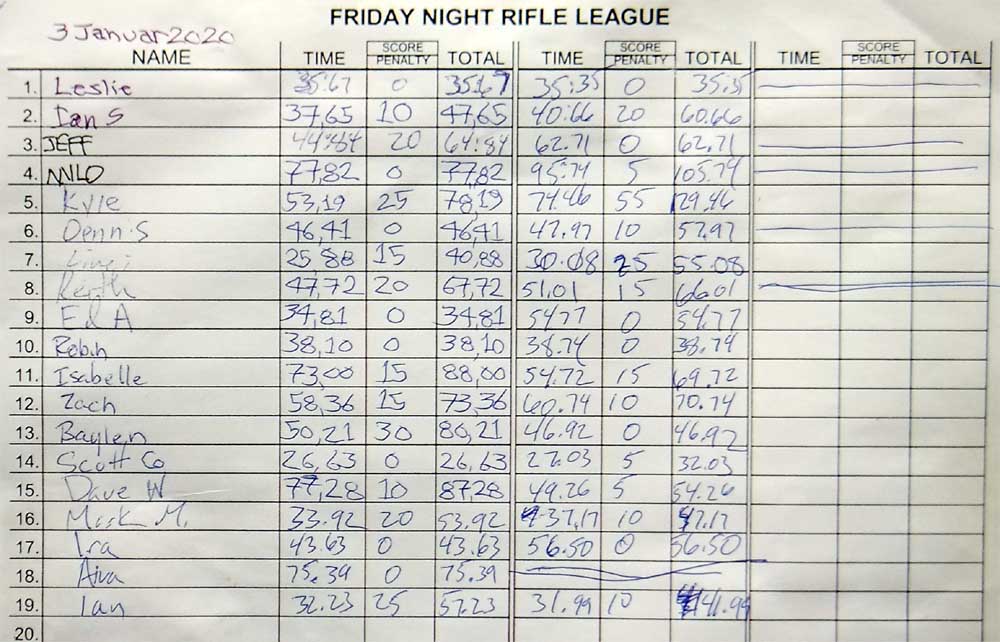 FRIDAY NIGHT RIFLE LEAGUE
3 Januar 2020
NAME TIME SCORE PENALTY TOTAL TIME SCORE PENALTY TOTAL TIME SCORE PENALTY TOTAL
1. Leslie 35.67 0 35.67 35.35 0 35.35
2. Ian S 37,65 10 47,65 40.66 20 60.66
3. JEFF 44.84 20 64.84 62.71 0 62.71
4. MILO 77,82 0 77,82 95.74 5 105.74
5. Kyle 53,19 25 78,19 74.46 55 129.46
6. Dennis 46,41 0 46,41 47.97 10 57.97
7. 25,88 15 40,88 30.08 25 55.08
8. Keith 47,72 20 67,72 51.01 15 66.01
9. Ed A 34,81 0 34,81 54.77 0 54.77
10. Robin 38,10 0 38,10 38.74 0 38.74
11. Isabelle 73,00 15 88,00 54.72 15 69.72
12. Zach 58,36 15 73,36 60.74 10 70.74
13. Baylen 50,21 30 80,21 46.92 0 46.92
14. Scott Co 26,63 0 26,63 27.03 5 32.03
15. Dave W 77,28 10 87,28 49.26 5 54.26
16. Mark M. 33.92 20 53.92 37,17 10 47.17
17. Ira 43.63 0 43.63 56.50 0 56.50
18. 75.39 0 75.39
19. Ian 32.23 25 57.23 31.99 10 41.99
20.